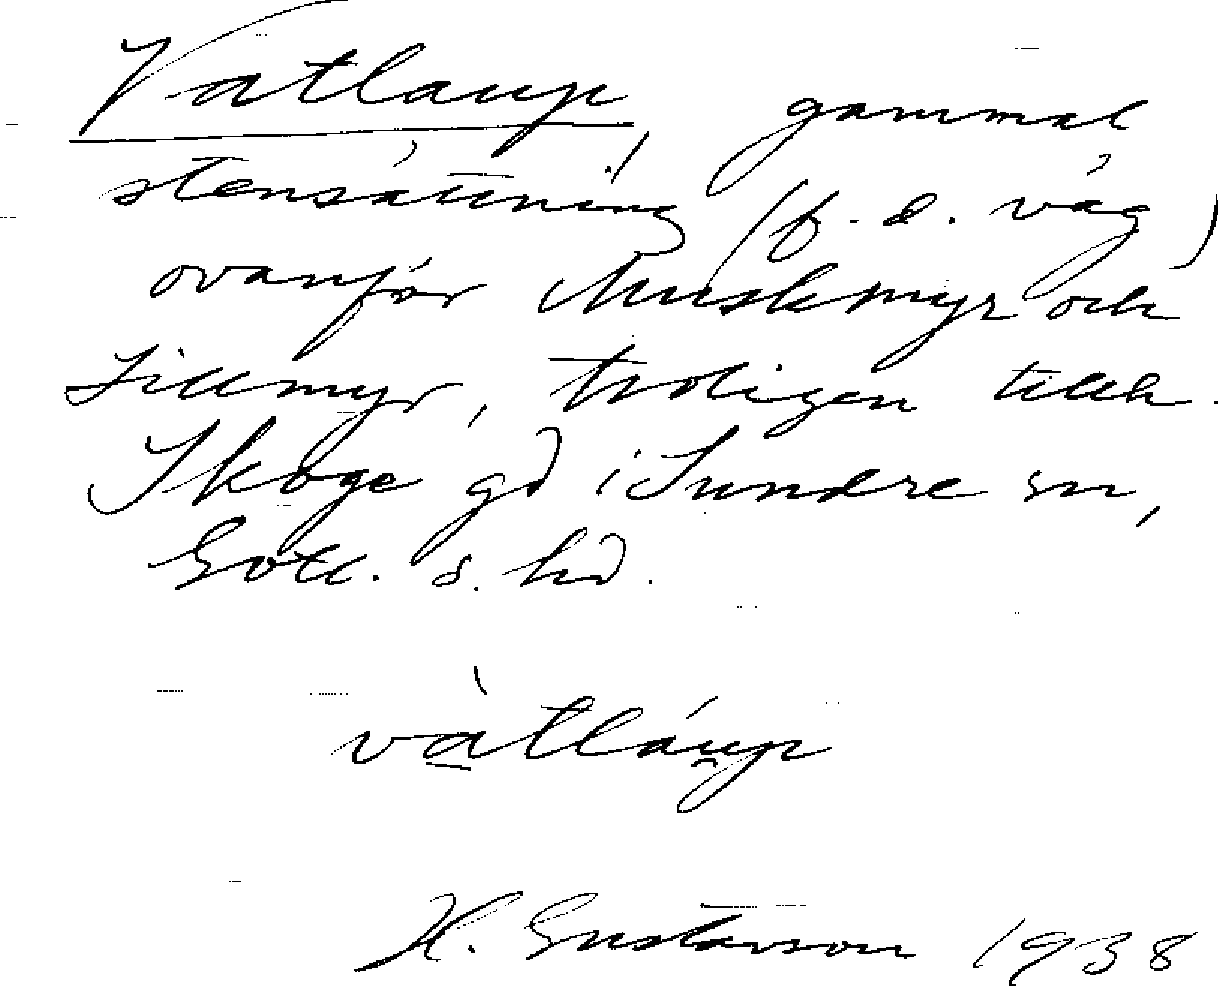 Vatlaup, gammal
stensättning (f. d. väg)
ovanför Muskmyr och
Lillmyr, troligen tillh.
Skoge gd i Sundre sn,
Gotl. s. hd.
vàtláup
H. Gustavson 1938